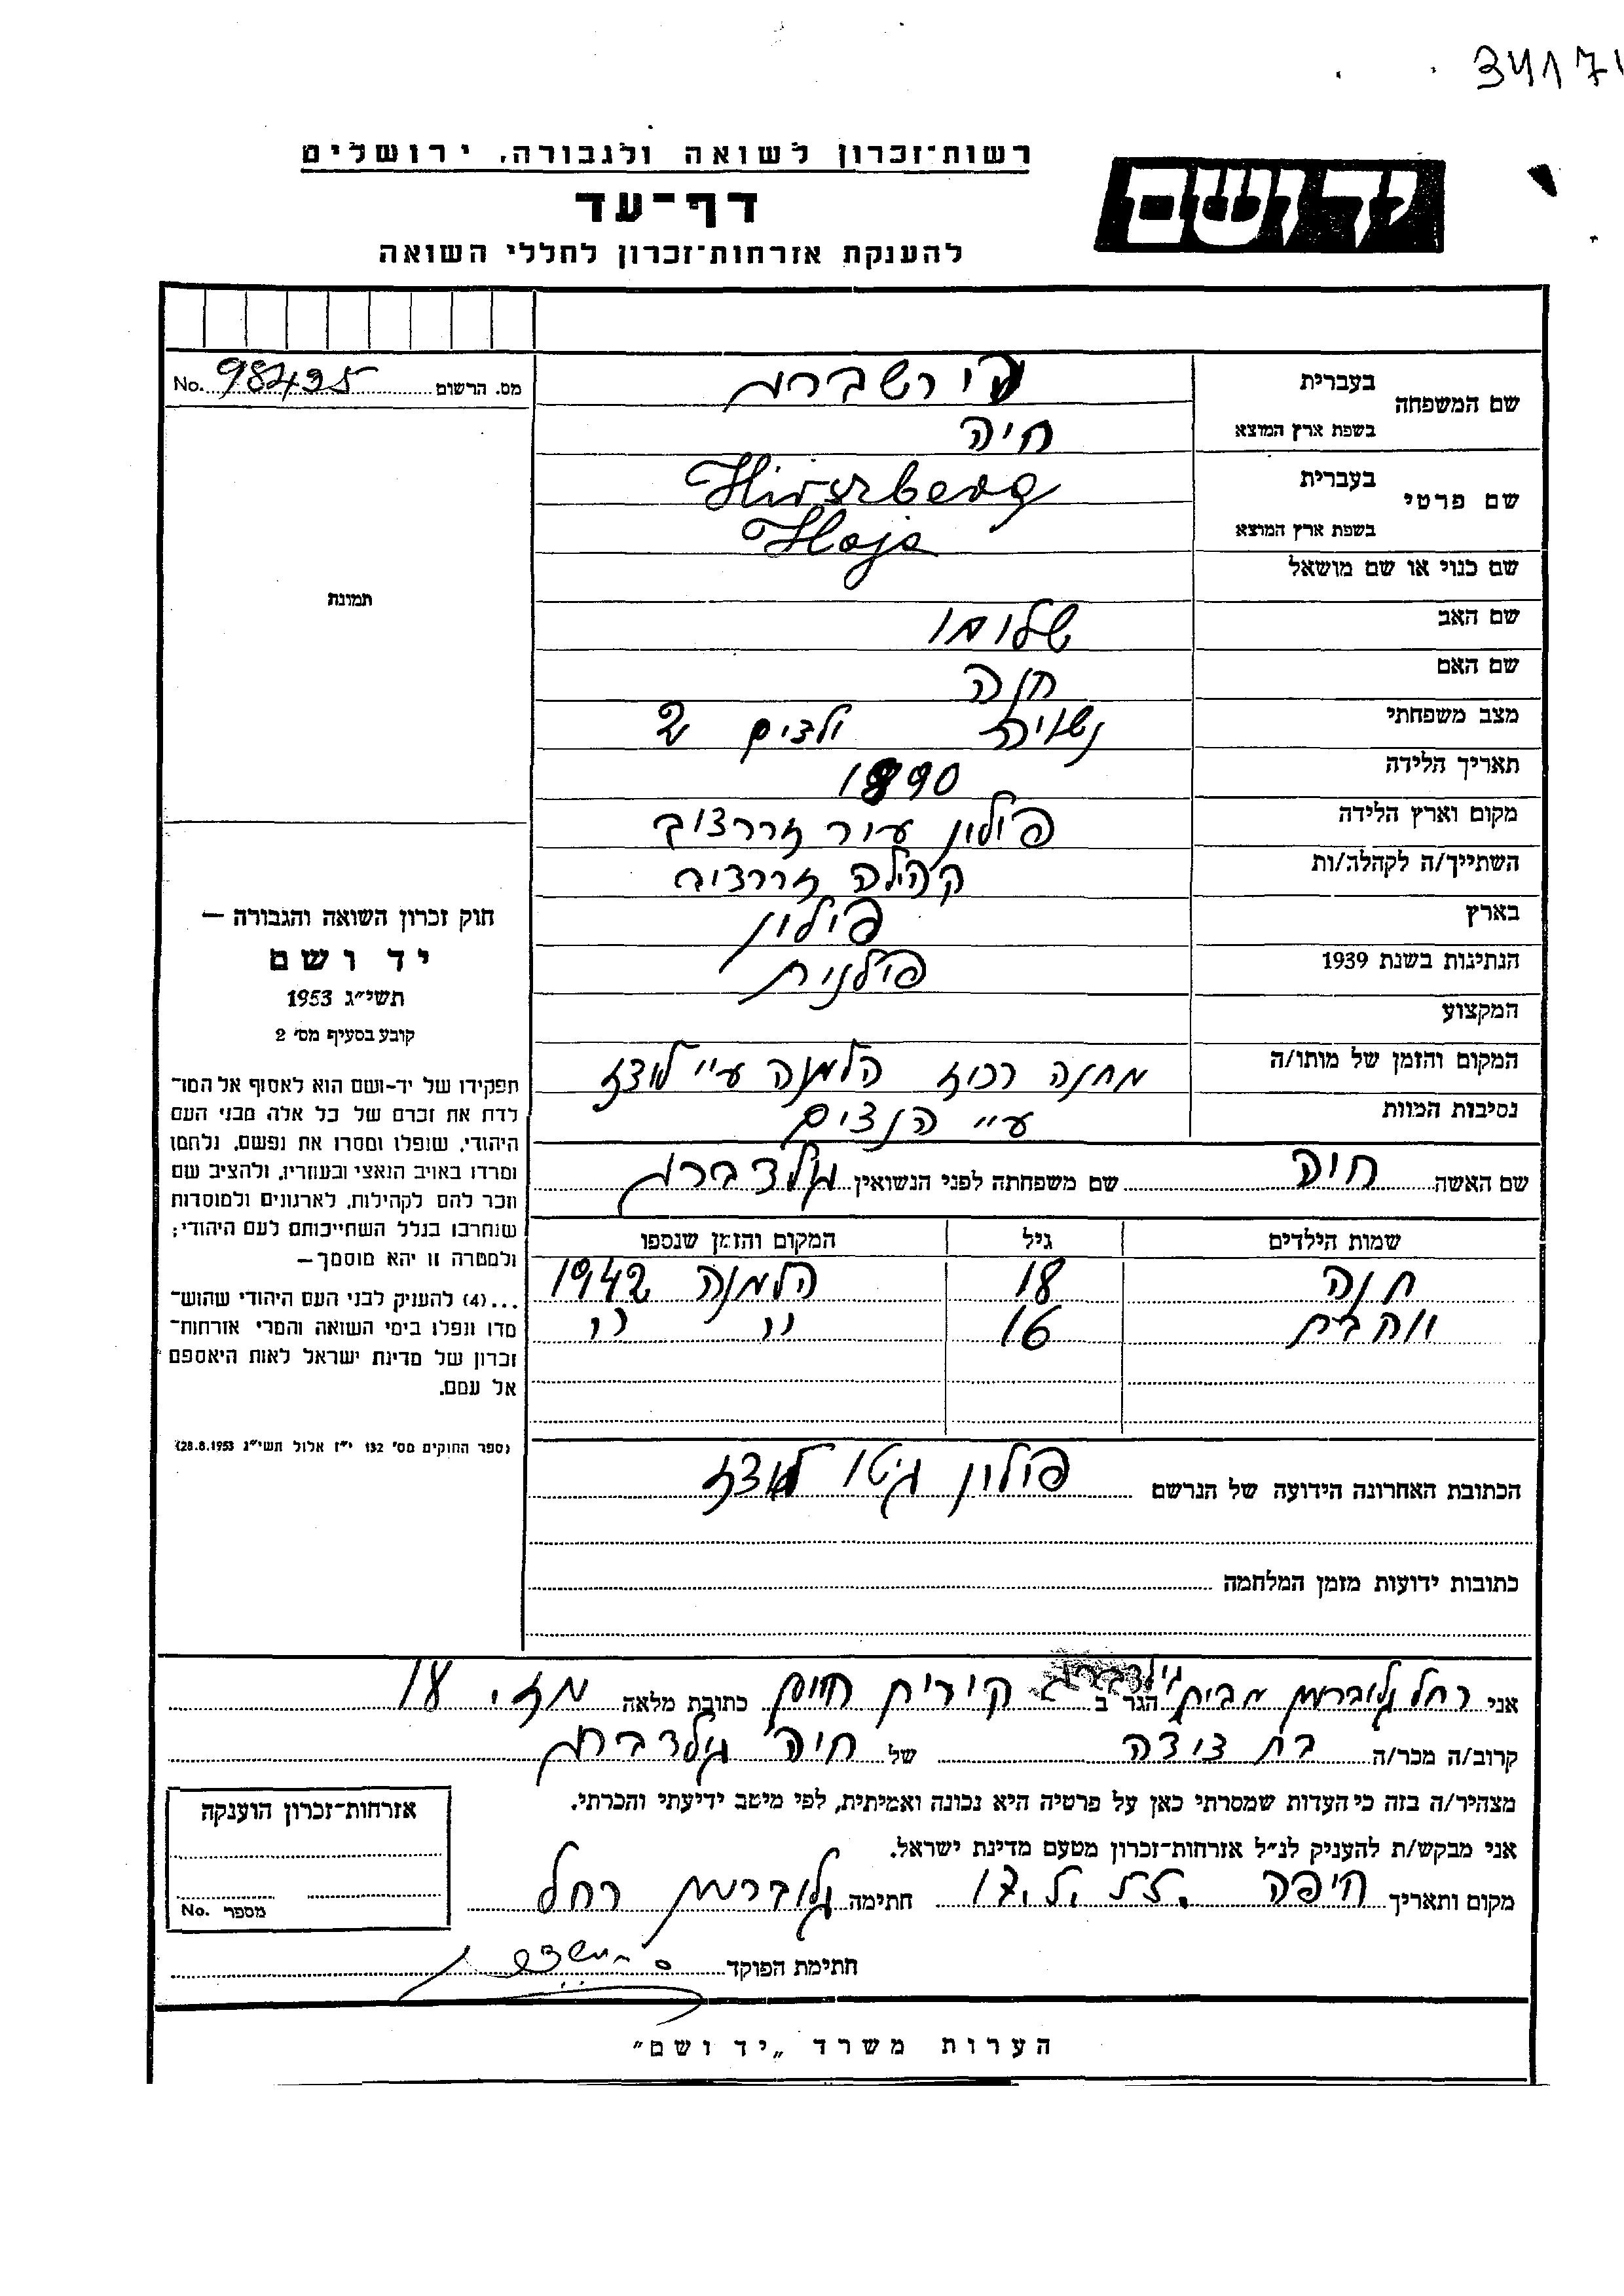 3417
רשות־זכרון לשואה ולגבורה, ירושלים
יד ושם
דף־עד
להענקת אזרחות־זכרון לחללי השואה
מס. הרשום 98425 No.
שם המשפחה
בעברית הירשברג
בשפת ארץ המוצא חיה
שם פרטי
בעברית Hirszberg
בשפת ארץ המוצא Haja
שם כנוי או שם מושאל
שם האב שלומו
שם האם חנה
מצב משפחתי נשואה ילדים 2
תאריך הלידה 1890
מקום וארץ הלידה פולין עיר
השתייך/ה לקהלה/ות קהילה
בארץ פולין
הנתינות בשנת 1939 פולנית
המקצוע
המקום והזמן של מותו/ה מחנה רכוז הלמנה ע״י לודז
נסיבות המוות ע״י הנצים
שם האשה חיה שם משפחתה לפני הנשואין גולדברג
שמות הילדים גיל המקום והזמן שנספו
חנה 18 הלמנה 1942
16 " "
הכתובת האחרונה הידועה של הנרשם פולין גיטו לודז
כתובות ידועות מזמן המלחמה
אני רחל מבית גולדברג הגר ב קירית חיים כתובת מלאה 18
קרוב/ה מכר/ה בת דודה של חיה גולדברג
מצהיר/ה בזה כי העדות שמסרתי כאן על פרטיה היא נכונה ואמיתית, לפי מיטב ידיעתי והכרתי.
אני מבקש/ת להעניק לנ״ל אזרחות־זכרון מטעם מדינת ישראל.
מקום ותאריך חיפה חתימה רחל
חתימת הפוקד
תמונת
חוק זכרון השואה והגבורה —
יד ושם
תשי״ג 1953
קובע בסעיף מס׳ 2
תפקידו של יד-ושם הוא לאסוף אל המו־
לדת את זכרם של כל אלה מבני העם
היהודי, שנפלו ומסרו את נפשם, נלחמו
ומרדו באויב הנאצי ובעוזריו, ולהציב שם
וזכר להם לקהילות, לארגונים ולמוסדות
שנחרבו בגלל השתייכותם לעם היהודי;
ולמטרה זו יהא מוסמך —
...(4) להעניק לבני העם היהודי שהוש־
מדו ונפלו בימי השואה והמרי אזרחות־
זכרון של מדינת ישראל לאות היאספם
אל עמם.
(ספר החוקים מס׳ 132 י״ז אלול תשי״ג 28.8.1953)
אזרחות־זכרון הוענקה
מספר No.
הערות משרד „יד ושם"